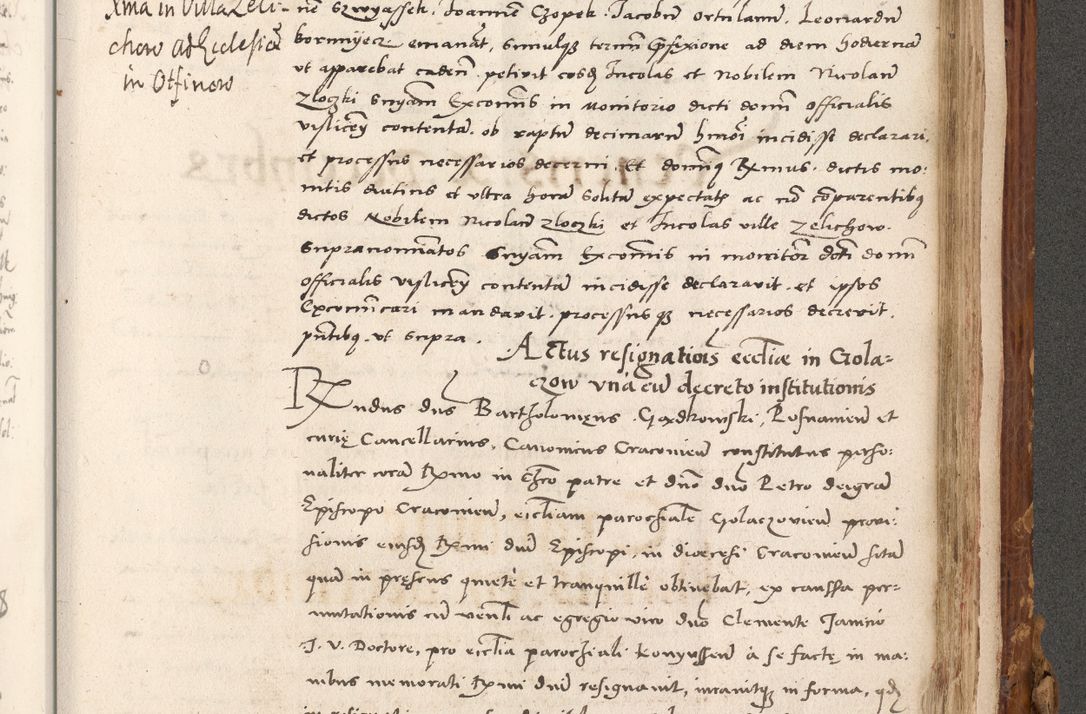 Xma in Villa Zeli-
chow ad Ecclesiã
in Otfinow
nẽ Szwyassek, Joannẽ Czopek, Jacobũ Ortulanũ, Leonardũ
kormyecz emanãt, simulqz termĩ p̃fixione ad diem hodiernã
ut apparebat eadem̃. petivit eosdz Incolas et Nobilem Nicolaũ
Zloczki snÿam Excom̃is in Monitorio dicti domñ Officialis
Visliceñ contentã, ob raptũ decimarũ hm̃oi incidisse declarari,
et processus necessarios decerni. Et domnqz Rxmus. dictis mo-
nitis diutius et ultra horã solitã expectatz ac nõ cõparentibqz
dictos Nobilem Nicolaũ Zloczki et Incolas ville Zelichow.
supranominãtos snÿam Excom̃is in monitor̃ dcti domñ
officialis Visliceñ contentã incidisse declaravit. et ipsos
Excom̃icari mandavit. processusqz necessarios decrevit.
pñtibqz ut supra.
Actus resignationis eccliæ in Gola-
czow unà cũ decreto institutionis
Rxndus dñs Bartholomęus Gądkowski, Posnanieñ et
curię Cancellarius, Canonicus Cracovieñ constitutus perso-
naliter corã Rxmo in Chro patre et dño dño Petro dei grã
Episcopo Cracovieñ, eccliam parochialẽ Golaczovieñ provi-
sionis eiusdz Rxmi dñi Episcopi, in diocesi Cracovieñ sitã
quã in pręsens quietè et tranquillè obtinebat, ex caussa per-
mutationis cũ venli ac egregio viro dño Clemente Janicio
J. V. Doctore, pro ecclia parochiali Konyusseñ à se factę in ma-
nibus memorati Rxmi dñi resignavit, iuravitqz in forma, qdz